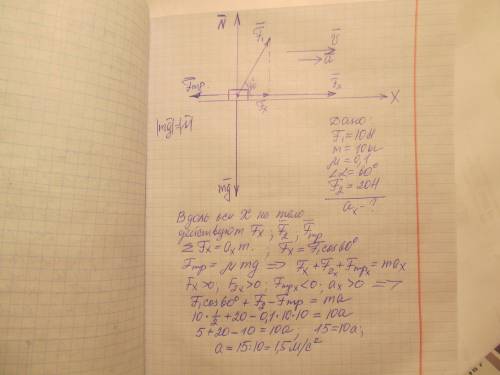 N̅ F̅₁ v̅
a̅
F̅mp F̅x
Fx X
|mg|=|N|
mg̅
Дано:
F₁=10Н
m=10кг
μ=0,1
∠α=60°
F₂=20Н
aₓ-?
Вдоль оси X на тело
действуют Fx; F̅₂; F̅mp
ΣFx=axm. Fx=F₁cos60°
Fmp=μmg => Fx+F₂x+Fmpx=max
Fx>0; F₂x>0; Fmpx<0; ax>0 =>
F₁cos60°+F₂-Fmp=ma
10·½+20-0,1·10·10=10a
5+20-10=10a; 15=10a;
a=15:10=1,5м/с²